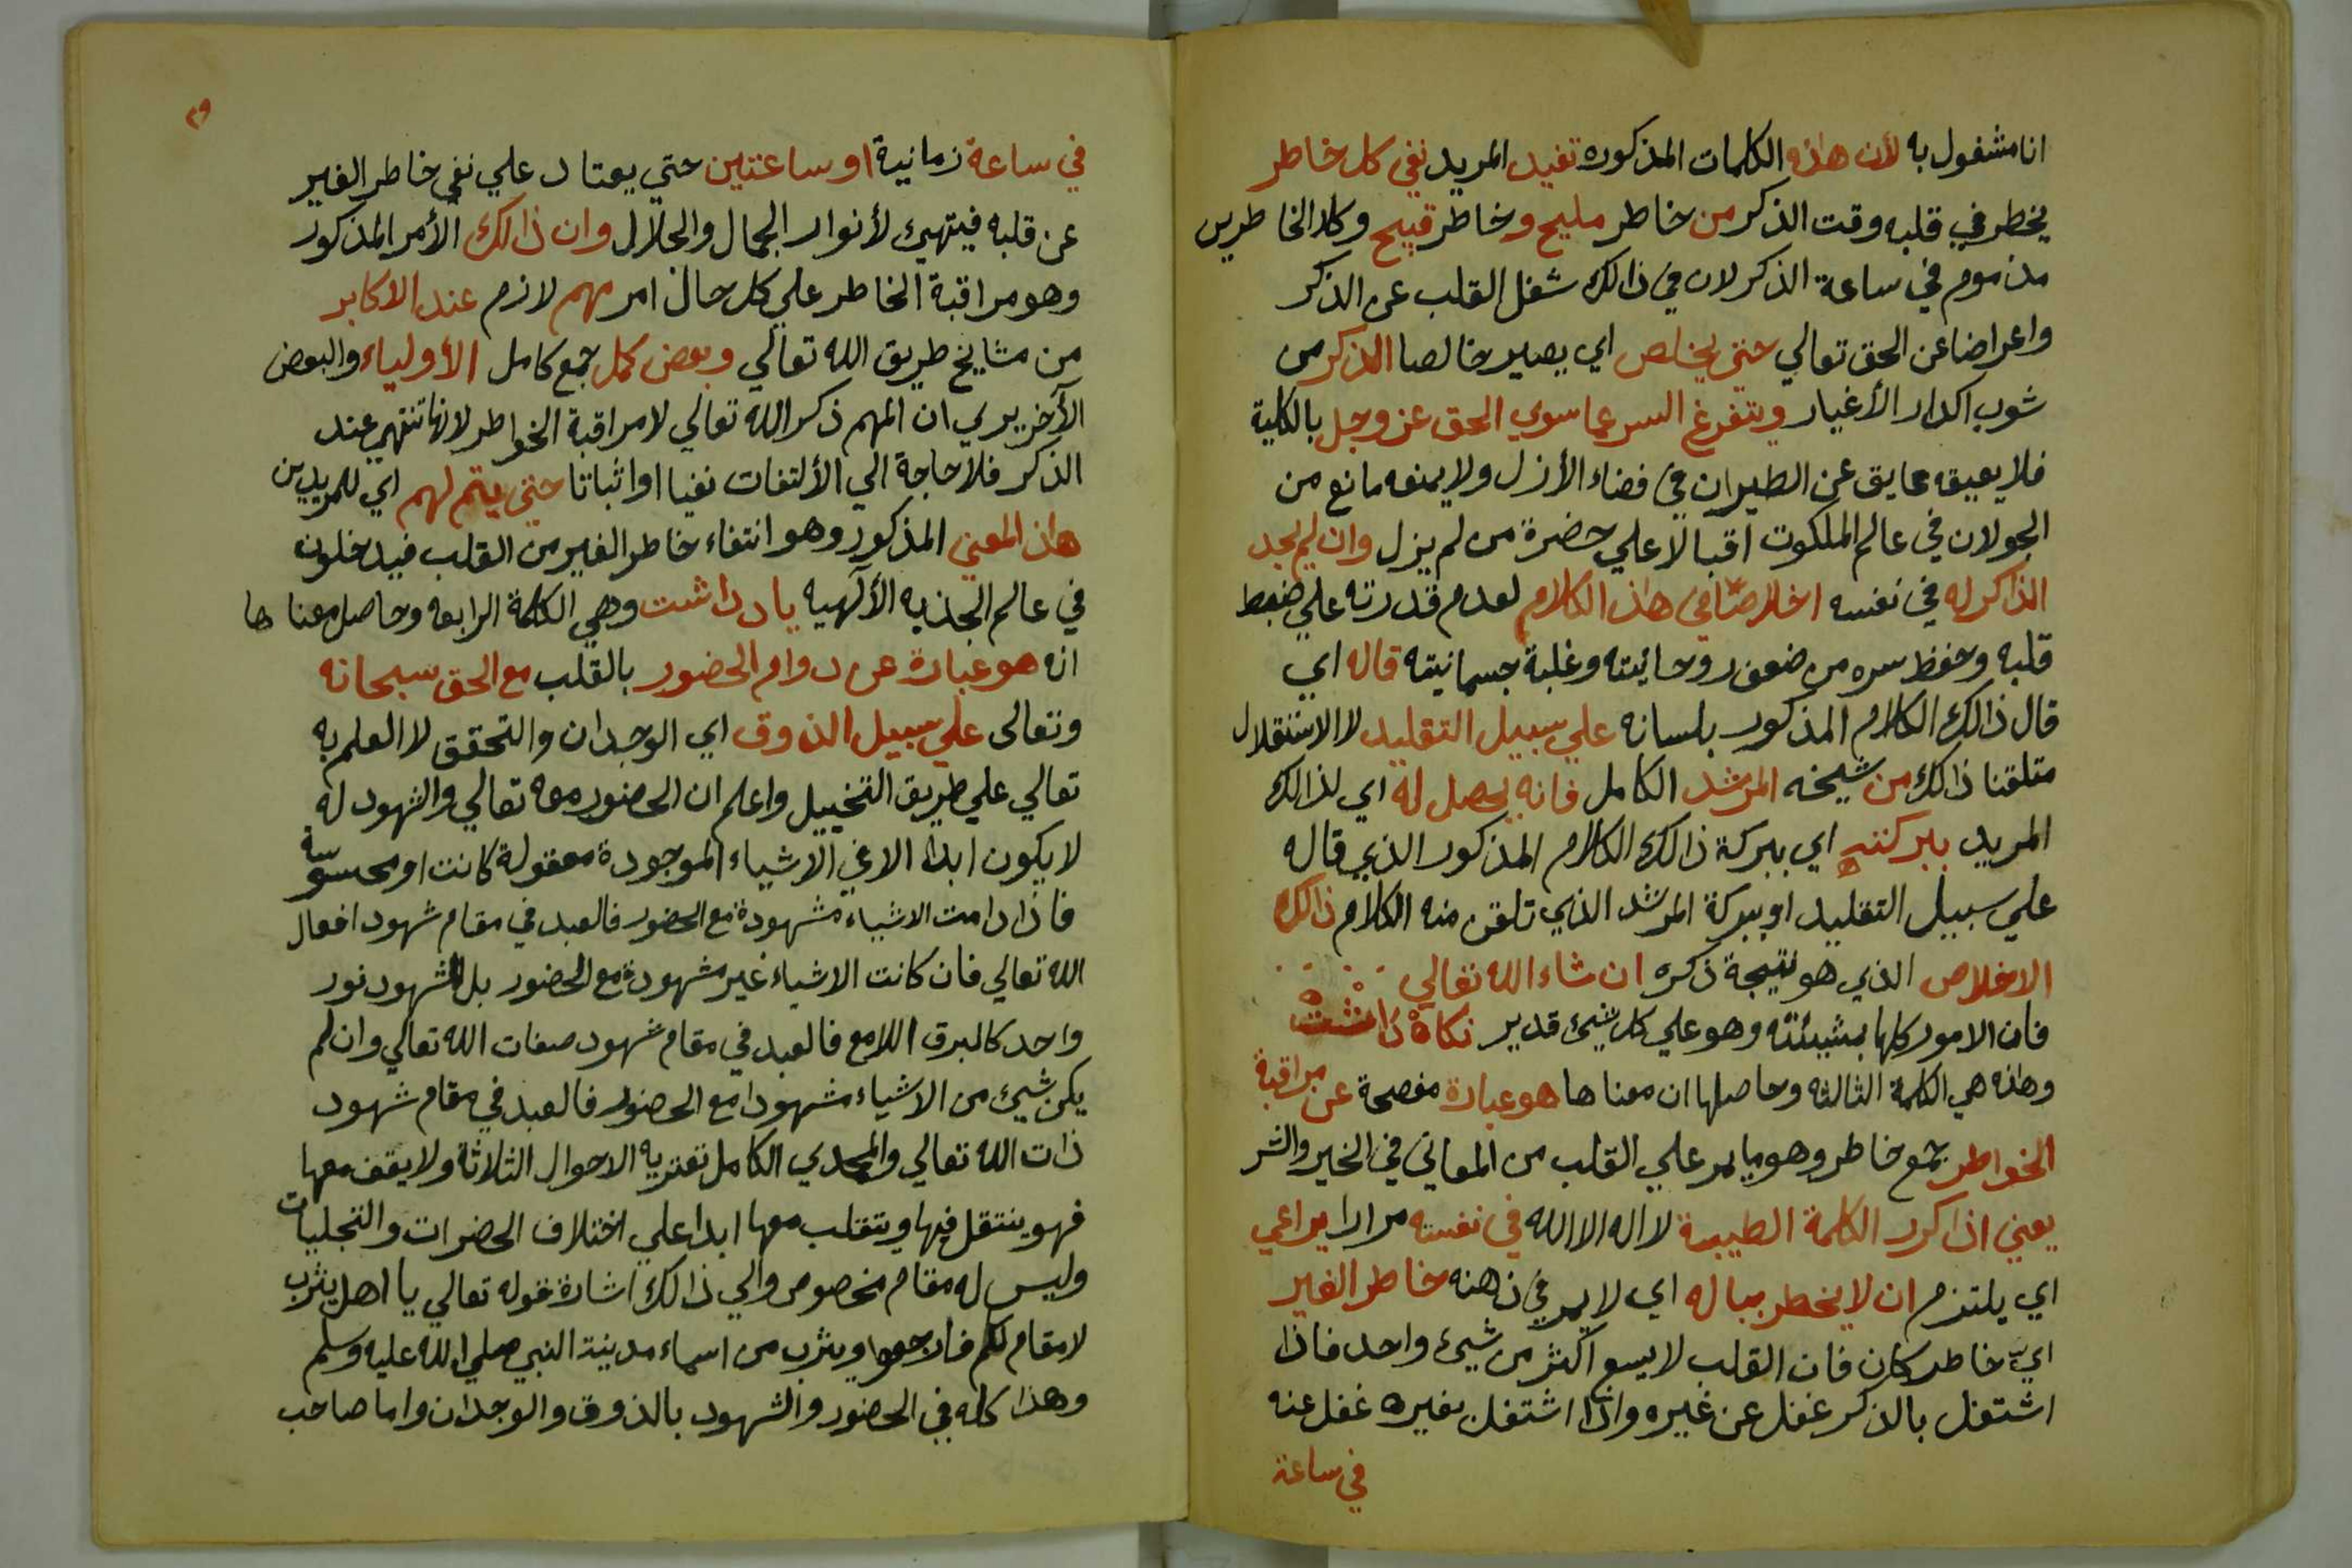 انا مشغول به لأن هذه الكلمات المذكوره تفيد المريد نفي كل خاطر
يخطر في قلبه وقت الذكر من خاطر مليح وخاطر قبيح وكلا الخاطرين
مذموم في ساعة الذكر لان في ذالك شغل القلب عن الذكر
واعراضا عن الحق تعالي حتي يخلص اي يصير خالصا الذكر من
شوب اكدار الأغيار ويتفرغ السر عما سوي الحق عز وجل بالكلية
فلا يعيقه عايق عن الطيران في فضاء الأزل ولا يمنعه مانع من
الجولان في عالم الملكوت اقبالا علي حضرة من لم يزل وان لم يجد
الذاكر له في نفسه اخلاصا في هذا الكلام لعدم قدرته علي ضبط
قلبه وحفظ سره من ضعف روحانيته وغلبة جسمانيته قاله اي
قال ذالك الكلام المذكور بلسانه علي سبيل التقليد لا الاستقلال
متلقنا ذالك من شيخه المرشد الكامل فانه يحصل له اي لذالك
المريد ببركته اي ببركة ذالك الكلام المذكور الذي قاله
علي سبيل التقليد او ببركة المرشد الذي تلقن منه الكلام ذالك
الاخلاص الذي هو نتيجة ذكره ان شاء الله تعالي
فان الامور كلها بمشيئته وهو علي كل شيئ قدير نكاه داشت
وهذه هي الكلمة الثالثه وحاصلها ان معناها هو عبارة مفصحة عن مراقبة
الخواطر جمع خاطر وهو ما يمر علي القلب من المعاني في الخير والشر
يعني اذا كرر الكلمة الطيبة لا اله الا الله في نفسه مرارا يراعي
اي يلتزم ان لا يخطر بباله اي لا يمر في ذهنه خاطر الغير
ايّ خاطر كان فان القلب لا يسع اكثر من شيئ واحد فاذا
اشتغل بالذكر غفل عن غيره واذا اشتغل بغيره غفل عنه
في ساعة
٢٩
في ساعة زمانية او ساعتين حتي يعتاد علي نفي خاطر الغير
عن قلبه فيتهيئ لأنوار الجمال والجلال وان ذالك الأمر المذكور
وهو مراقبة الخاطر علي كل حال امر مهم لازم عند الاكابر
من مشايخ طريق الله تعالي وبعض كمل جمع كامل الأولياء والبعض
الآخر يري ان المهم ذكر الله تعالي لا مراقبة الخواطر لانها تنتهي عند
الذكر فلا حاجة الي الألتفات نفيا او اثباتا حتي يتم لهم اي للمريدين
هذا المعني المذكور وهو انتفاء خاطر الغير من القلب فيدخلون
في عالم الجذبه الألهيه ياد داشت وهي الكلمة الرابعه وحاصل معناها
انه هو عبارة عن دوام الحضور بالقلب مع الحق سبحانه
وتعالى علي سبيل الذوق اي الوجدان والتحقق لا العلم به
تعالي علي طريق التخييل واعلم ان الحضور معه تعالي والشهود له
لا يكون ابدا الا في الاشياء الموجودة معقولة كانت او محسوسة
فاذا دامت الاشياء مشهودة مع الحضور فالعبد في مقام شهود افعال
الله تعالي فان كانت الاشياء غير مشهودة مع الحضور بل المشهود نور
واحد كالبرق اللامع فالعبد في مقام شهود صفات الله تعالي وان لم
يكن شيئ من الاشياء مشهودا مع الحضور فالعبد في مقام شهود
ذات الله تعالي والمحمدي الكامل تعتريه الاحوال الثلاثة ولا يقف معها
فهو ينتقل فيها ويتقلب معها ابدا علي اختلاف الحضرات والتجليات
وليس له مقام مخصوص والي ذالك اشارة قوله تعالي يا اهل يثرب
لا مقام لكم فارجعوا ويثرب من اسماء مدينة النبي صلي الله عليه وسلم
وهذا كله في الحضور والشهود بالذوق والوجدان واما صاحب